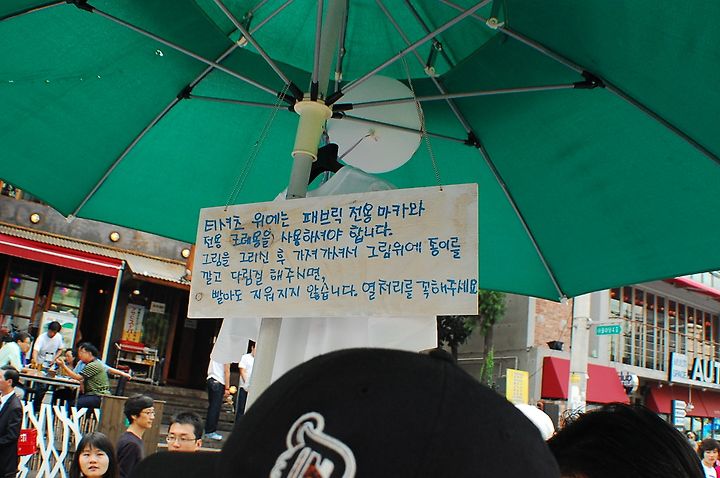 티셔츠 위에는 패브릭 전용 마카와
전용 크레용을 사용하셔야 합니다.
그림을 그리신 후 가져가셔서 그림위에 종이를
깔고 다림질 해주시면,
빨아도 지워지지 않습니다. 열처리를 꼭해주세요
AUT